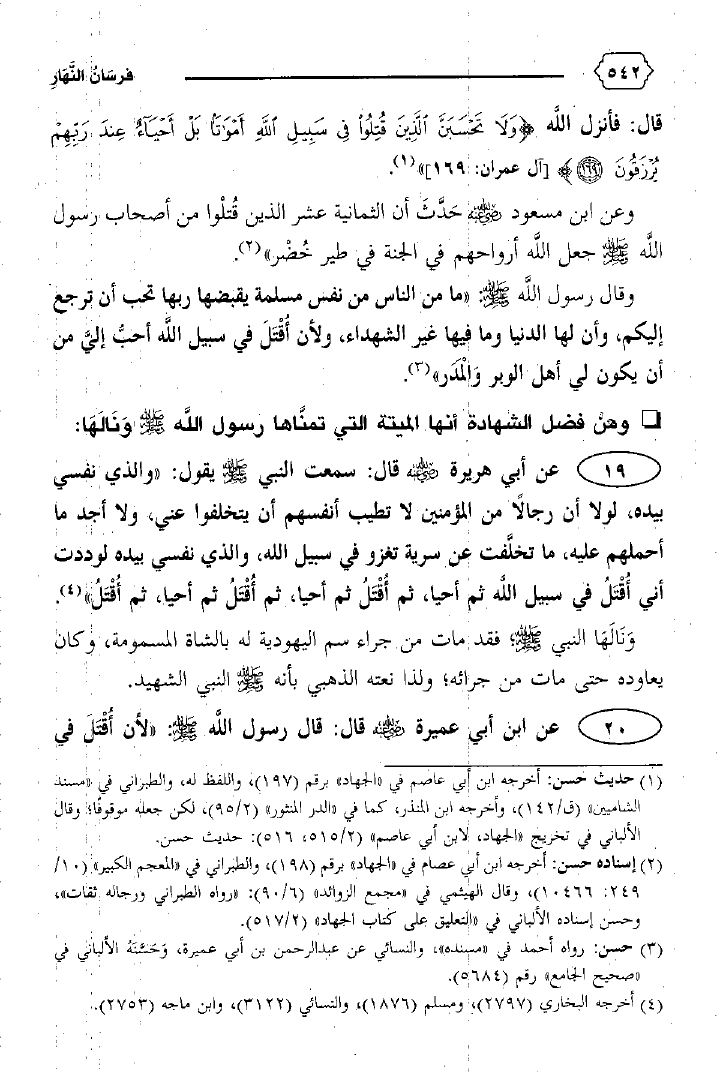 ٥٤٢ فرسَانُ النَّهَارِ
قال: فأنزل اللَّه ﴿وَلَا تَحْسَبَنَّ ٱلَّذِينَ قُتِلُوا۟ فِى سَبِيلِ ٱللَّهِ أَمْوَٰتًۢا بَلْ أَحْيَآءٌ عِندَ رَبِّهِمْ
يُرْزَقُونَ ۝١٦٩﴾ [آل عمران: ١٦٩]»(١).
وعن ابن مسعود رضي الله عنه حَدَّثَ أن الثمانية عشر الذين قُتلُوا من أصحاب رسول
اللَّه ﷺ جعل اللَّه أرواحهم في الجنة في طير خُضْر»(٢).
وقال رسول اللَّه ﷺ: «ما من الناس من نفس مسلمة يقبضها ربها تحب أن ترجع
إليكم، وأن لها الدنيا وما فيها غير الشهداء، ولأن أُقْتَلَ في سبيل اللَّه أحبُّ إليَّ من
أن يكون لي أهل الوبر وَالْمَدَر»(٣).
❑ ومن فضل الشهادة أنها الميتة التي تمنَّاها رسول اللَّه ﷺ وَنَالَهَا:
١٩ عن أبي هريرة رضي الله عنه قال: سمعت النبي ﷺ يقول: «والذي نفسي
بيده، لولا أن رجالًا من المؤمنين لا تطيب أنفسهم أن يتخلفوا عني، ولا أجد ما
أحملهم عليه، ما تخلَّفت عن سرية تغزو في سبيل الله، والذي نفسي بيده لوددت
أني أُقْتَلُ في سبيل اللَّه ثم أحيا، ثم أُقْتَلُ ثم أحيا، ثم أُقْتَلُ ثم أحيا، ثم أُقْتَلُ»(٤).
وَنَالَهَا النبي ﷺ؛ فقد مات من جراء سم اليهودية له بالشاة المسمومة، وكان
يعاوده حتى مات من جرائه؛ ولذا نعته الذهبي بأنه ﷺ النبي الشهيد.
٢٠ عن ابن أبي عميرة رضي الله عنه قال: قال رسول اللَّه ﷺ: «لأن أُقْتَلَ في
(١) حديث حسن: أخرجه ابن أبي عاصم في «الجهاد» برقم (١٩٧)، واللفظ له، والطبراني في «مسند
الشاميين» (ق/١٤٢)، وأخرجه ابن المنذر، كما في «الدر المنثور» (٩٥/٢)، لكن جعله موقوفًا؛ وقال
الألباني في تخريج «الجهاد، لابن أبي عاصم» (٥١٥/٢، ٥١٦): حديث حسن.
(٢) إسناده حسن: أخرجه ابن أبي عصام في «الجهاد» برقم (١٩٨)، والطبراني في «المعجم الكبير» (١٠/
٢٤٩: ١٠٤٦٦)، وقال الهيثمي في «مجمع الزوائد» (٩٠/٦): «رواه الطبراني ورجاله ثقات»،
وحسن إسناده الألباني في «التعليق على كتاب الجهاد» (٥١٧/٢).
(٣) حسن: رواه أحمد في «مسنده»، والنسائي عن عبدالرحمن بن أبي عميرة، وَحَسَّنَهُ الألباني في
«صحيح الجامع» رقم (٥٦٨٤).
(٤) أخرجه البخاري (٢٧٩٧)، ومسلم (١٨٧٦)، والنسائي (٣١٢٢)، وابن ماجه (٢٧٥٣).